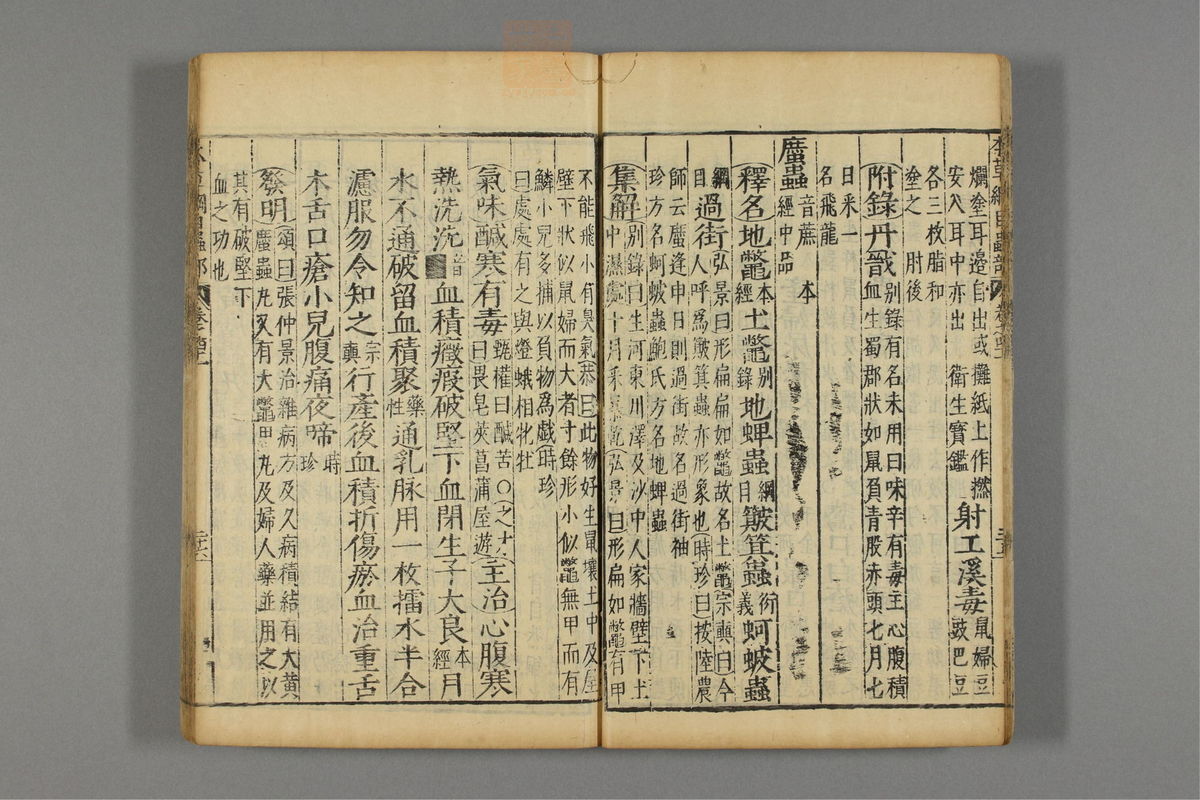 爛塗耳邊自出或攤紙上作撚安入耳中亦出 衛生寶鑑射工溪毒鼠婦豆豉巴豆
各三枚脂和塗之 肘後
附錄丹戩别錄有名未用曰味辛有毒主心腹積血生蜀郡狀如鼠負青股赤頭七月七
日采一名飛龍
䗪蟲音蔗 本經中品
釋名地鼈本經土鼈别錄地蜱蟲綱目簸箕蟲衍義蚵蚾蟲
綱目過街弘景曰形扁扁如鼈故名土鼈宗奭曰今人呼爲簸箕蟲亦形象也時珍曰按陸農
師云䗪逢申日則過街故名過街袖珍方名蚵蚾蟲鮑氏方名地蜱蟲
集解别錄曰生河東川澤及沙中人家牆壁下土中濕處十月采暴乾弘景曰形扁如鼈有甲
不能飛小有臭氣恭曰此物好生鼠壤土中及屋壁下狀似鼠婦而大者寸餘形小似鼈無甲而有
鱗小兒多捕以負物爲戲時珍曰處處有之與燈蛾相牝牡
氣味鹹寒有毒甄權曰鹹苦○之才曰畏皂莢菖蒲屋遊主治心腹寒
熱洗洗音血積癥瘕破堅下血閉生子大良本經月
水不通破留血積聚藥性通乳脉用一枚擂水半合
濾服勿令知之宗奭行產後血積折傷瘀血治重舌
木舌口瘡小兒腹痛夜啼時珍
發明頌曰張仲景治雜病方及久病積結有大黄䗪蟲丸又有大鼈甲丸及婦人藥並用之以
其有破堅下血之功也